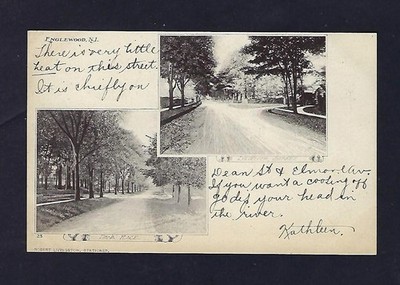 ENGLEWOOD, N.J.
There is very little
heat on this street.
It is chiefly on
Dean St & Elmond Av.
If you want a cooling off
go dip your head in
the river.
Kathleen.